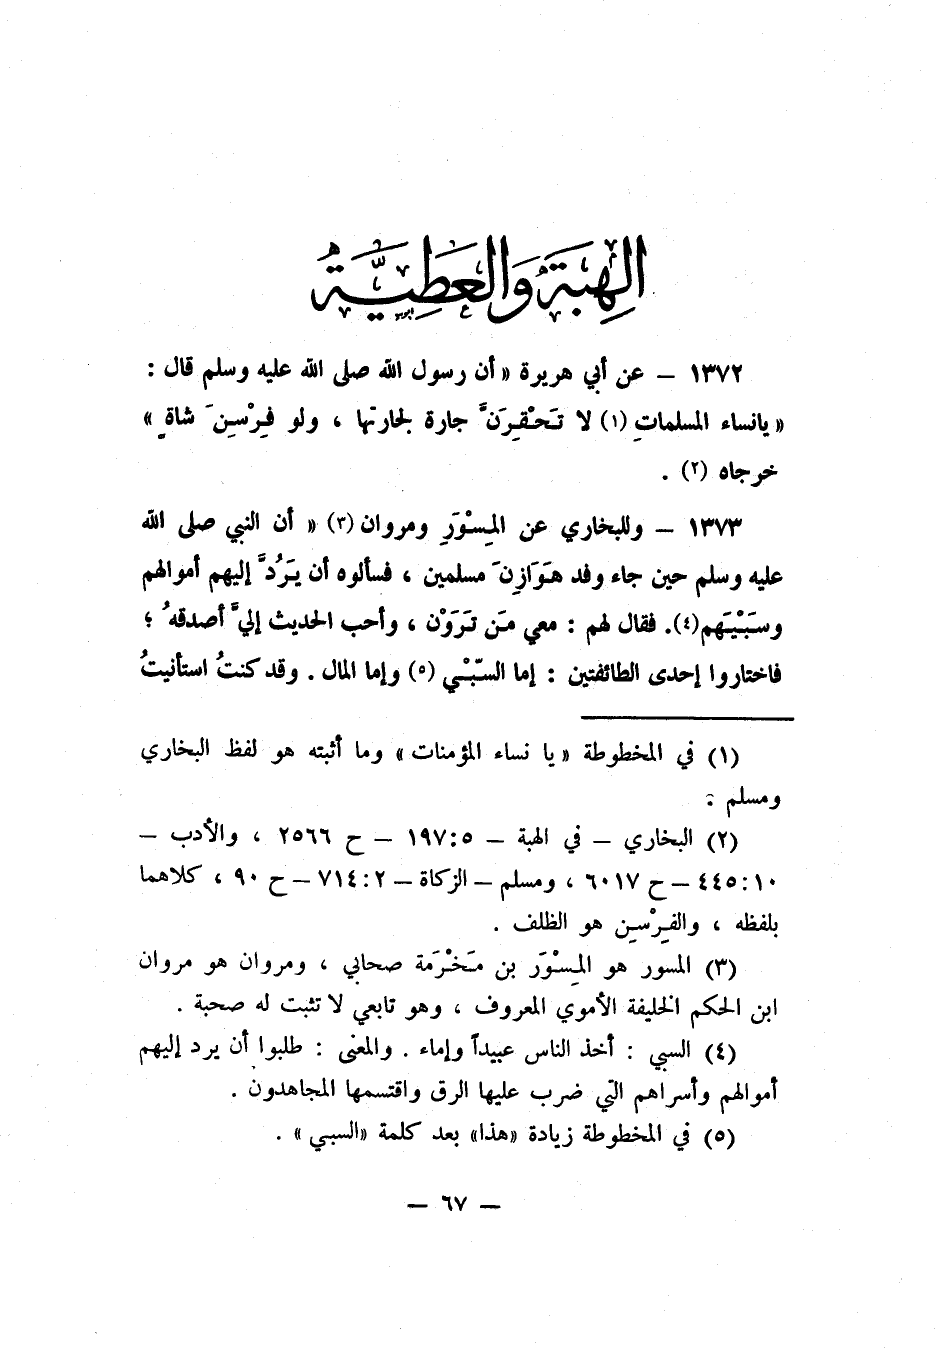 الهِبَةُ وَالعَطِيَّةُ
١٣٧٢ – عن أبي هريرة « أن رسول الله صلى الله عليه وسلم قال :
« يانساء المسلماتِ (١) لا تَحْقِرَنَّ جارة لجارتها ، ولو فِرْسِنَ شاةٍ »
خرجاه (٢) .
١٣٧٣ – وللبخاري عن المِسْوَرِ ومروان (٣) « أن النبي صلى الله
عليه وسلم حين جاء وفد هَوَازِنَ مسلمين ، فسألوه أن يَرُدَّ إليهم أموالهم
وسَبْيَهم(٤). فقال لهم : معي مَن تَرَوْن ، وأحب الحديث إليَّ أصدقهُ ؛
فاختاروا إحدى الطائفتين : إما السَّبْي (٥) وإما المال . وقد كنتُ استأنيتُ
(١) في المخطوطة « يا نساء المؤمنات » وما أثبته هو لفظ البخاري
ومسلم .
(٢) البخاري – في الهبة – ١٩٧:٥ – ح ٢٥٦٦ ، والأدب –
٤٤٥:١٠ – ح ٦٠١٧ ، ومسلم – الزكاة – ٧١٤:٢ – ح ٩٠ ، كلاهما
بلفظه ، والفِرْسِن هو الظلف .
(٣) المسور هو المِسْوَر بن مَخْرَمة صحابي ، ومروان هو مروان
ابن الحكم الخليفة الأموي المعروف ، وهو تابعي لا تثبت له صحبة .
(٤) السبي : أخذ الناس عبيداً وإماء . والمعنى : طلبوا أن يرد إليهم
أموالهم وأسراهم التي ضرب عليها الرق واقتسمها المجاهدون .
(٥) في المخطوطة زيادة «هذا» بعد كلمة «السبي» .
– ٦٧ –